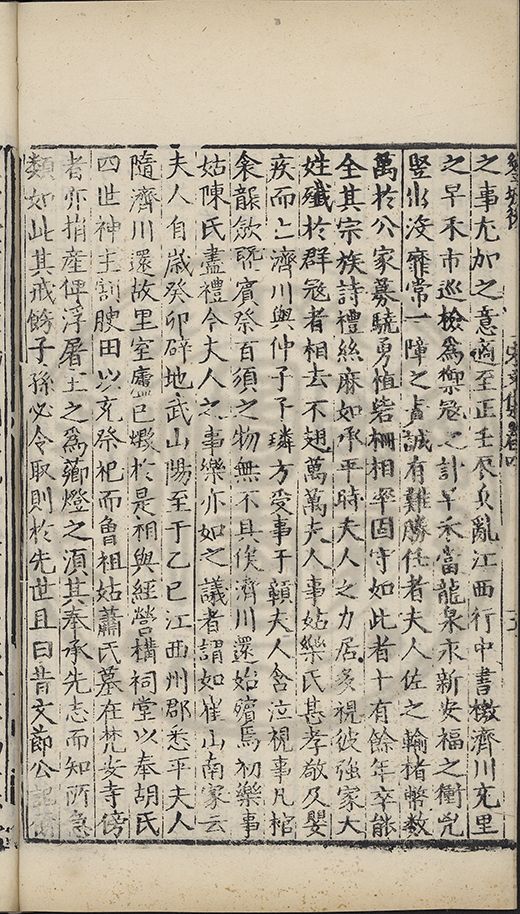 之事尤加之意適至正壬辰兵亂江西行中書檄濟川充里
之早禾市巡檢爲禦冦之計早禾當龍泉永新安福之衝兇
竪出没靡常一障之𭔃誠有難勝任者夫人佐之輸楮幣數
萬於公家募驍勇植砦柵相率固守如此者十有餘年卒能
全其宗族詩禮絲麻如承平時夫人之力居多視彼強家大
姓殱於群冦者相去不翅萬萬夫人事姑樂氏甚孝敬及嬰
疾而亡濟川與仲子子璘方受事于贑夫人含泣視事凡棺
衾韜斂旣賓祭百須之物無不具俟濟川還始殯焉初樂事
姑陳氏盡禮今夫人之事樂亦如之議者謂如崔山南家云
夫人自歲癸卯辟地武山陽至于乙巳江西州郡悉平夫人
隨濟川還故里室廬已燬於是相與經營構祠堂以奉胡氏
四世神主割腴田以充祭祀而魯祖姑蕭氏墓在梵安寺傍
者亦捐産俾浮屠主之爲薌燈之湏其奉承先志而知所急
類如此其戒飭子孫必令取則於先世且曰昔文節公